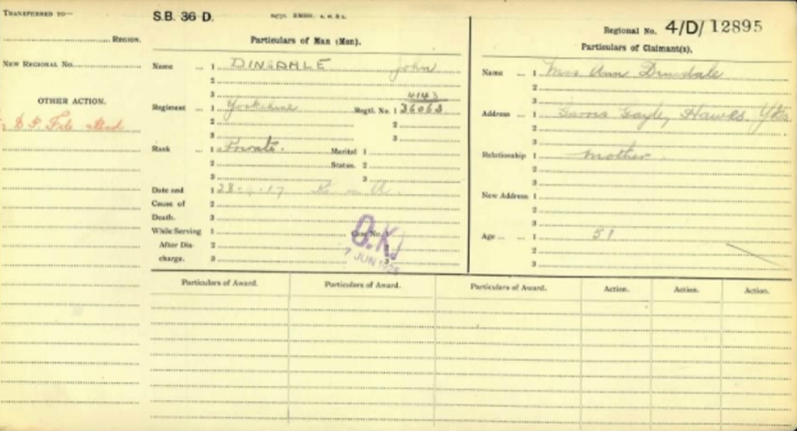 TRANSFERRED TO—
REGION.
NEW REGIONAL No.
OTHER ACTION.
D.P. File
S.B. 36 D.
Particulars of Man (Men).
Name ... 1 DINSDALE John
2
3
4143
Regiment 1 Yorkshire Regtl. No. 1 36063
2 2
3 3
Rank ... 1 Private. Marital 1
2 Status. 2
3 3
Date and 1 28-4-17 K in A.
Cause of 2
Death. 3
While Serving 1 Case No.
After Dis- 2
charge. 3
O.K.
7 JUN
Regional No. 4/D/12895
Particulars of Claimant(s).
Name ... 1 Mrs Ann Dinsdale
2
3
Address ... 1 Gayle, Hawes, Yks.
2
3
Relationship 1 mother.
2
3
New Address 1
2
3
Age ... ... 1 51
2
3
Particulars of Award. Particulars of Award. Particulars of Award. Action. Action. Action.